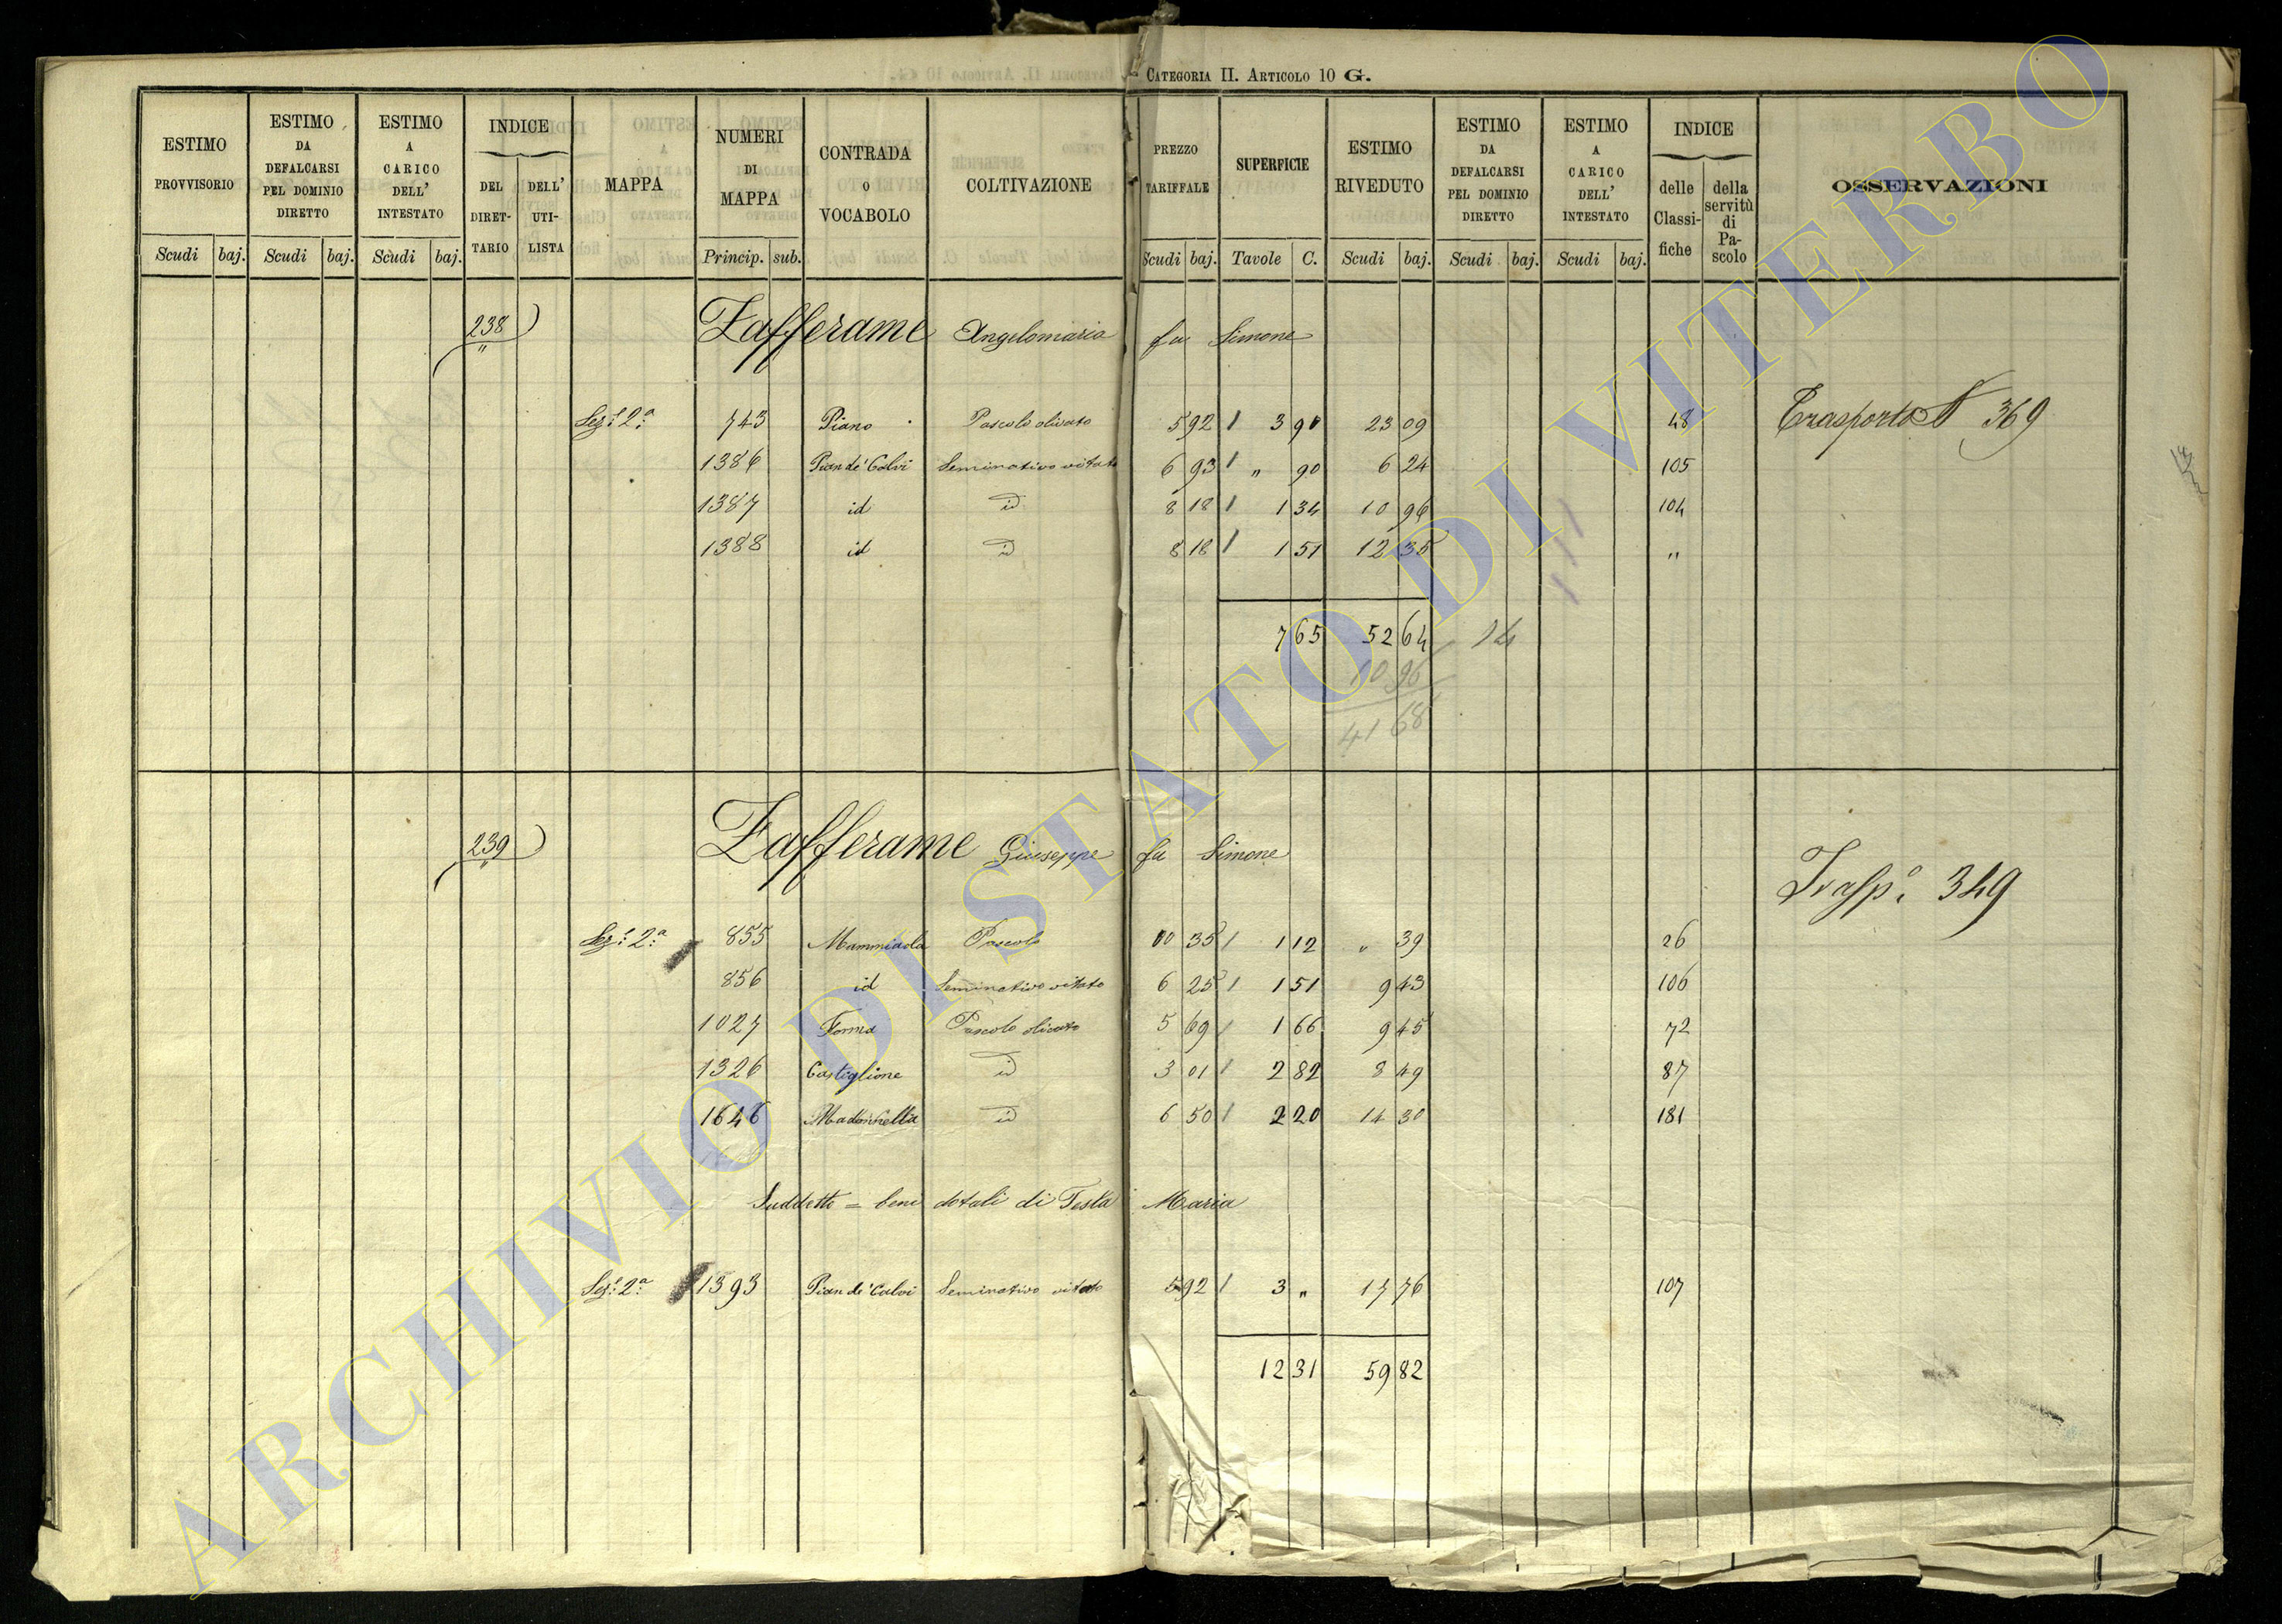 CATEGORIA II. ARTICOLO 10 G.
ESTIMO PROVVISORIO Scudi baj.
ESTIMO DA DEFALCARSI PEL DOMINIO DIRETTO Scudi baj.
ESTIMO A CARICO DELL' INTESTATO Scudi baj.
INDICE DEL DIRET-TARIO DELL' UTI-LISTA
MAPPA
NUMERI DI MAPPA Princip. sub.
CONTRADA O VOCABOLO
COLTIVAZIONE
PREZZO TARIFFALE Scudi baj.
SUPERFICIE Tavole C.
ESTIMO RIVEDUTO Scudi baj.
ESTIMO DA DEFALCARSI PEL DOMINIO DIRETTO Scudi baj.
ESTIMO A CARICO DELL' INTESTATO Scudi baj.
INDICE delle Classi-fiche della servitù di Pa-scolo
OSSERVAZIONI
238 Zafferame Angelomaria fu Simone
"
Sez.e 2.a 743 Piano Pascolo olivato 5 92 3 90 23 09 48 Trasporto N 369
1386 Pian de' Calvi Seminativo vitato 6 93 " 90 6 24 105
1387 id id 8 18 1 34 10 96 104
1388 id id 8 18 1 51 12 35 "
7 65 52 64 14
10 96
41 68
239 Zafferame Giuseppe fu Simone
"
Trasp.o 349
Sez.e 2.a 855 Mammiada Pascolo 00 35 1 12 " 39 26
856 id Seminativo vitato 6 25 1 51 9 43 106
1027 Forma Pascolo olivato 5 69 1 66 9 45 72
1326 Castiglione id 3 01 2 82 8 49 87
1646 Madonnella id 6 50 2 20 14 30 181
Suddetto = beni dotali di Testa Maria
Sez.e 2.a 1393 Pian de' Calvi Seminativo vitato 5 92 3 " 17 76 107
12 31 59 82
ARCHIVIO DI STATO DI VITERBO